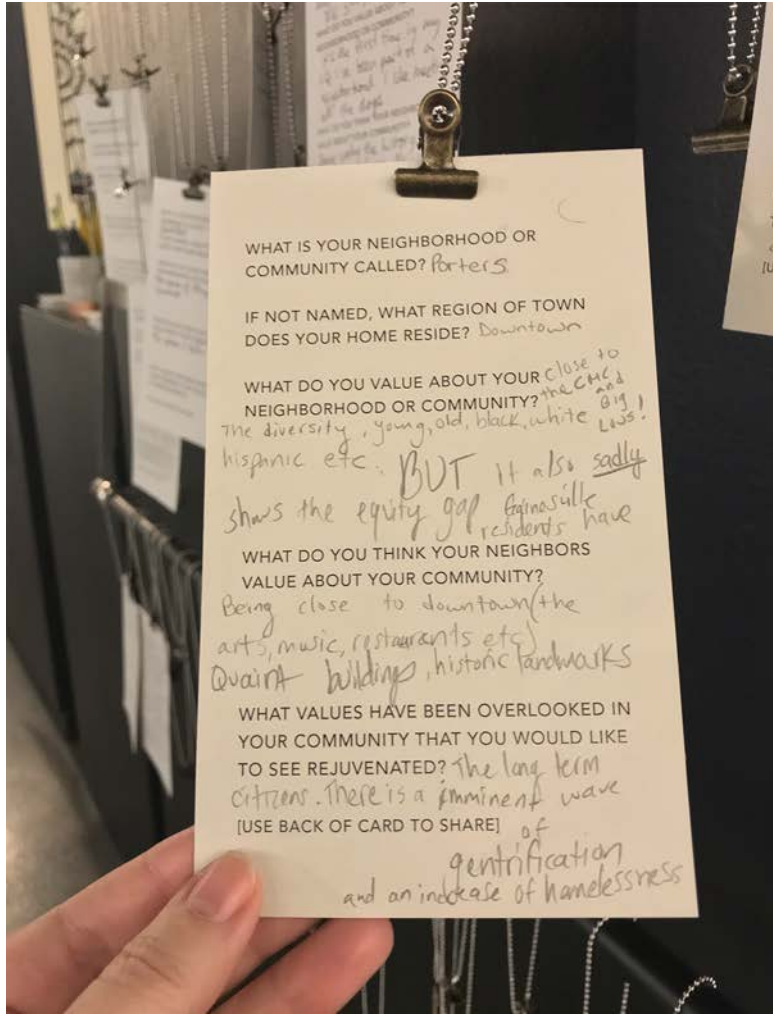 the first time in my
been part of a
I like
all the dogs
WHAT IS YOUR NEIGHBORHOOD OR
COMMUNITY CALLED? Porters
IF NOT NAMED, WHAT REGION OF TOWN
DOES YOUR HOME RESIDE? Downtown
WHAT DO YOU VALUE ABOUT YOUR close to
NEIGHBORHOOD OR COMMUNITY? the CMC and
The diversity, young, old, black, white Big Lous!
hispanic etc. BUT it also sadly
shows the equity gap Gainesville
residents have
WHAT DO YOU THINK YOUR NEIGHBORS
VALUE ABOUT YOUR COMMUNITY?
Being close to downtown (the
arts, music, restaurants etc)
Quaint buildings, historic landmarks
WHAT VALUES HAVE BEEN OVERLOOKED IN
YOUR COMMUNITY THAT YOU WOULD LIKE
TO SEE REJUVENATED? The long term
citizens. There is a imminent wave
[USE BACK OF CARD TO SHARE] of
gentrification
and an increase of homelessness
[U